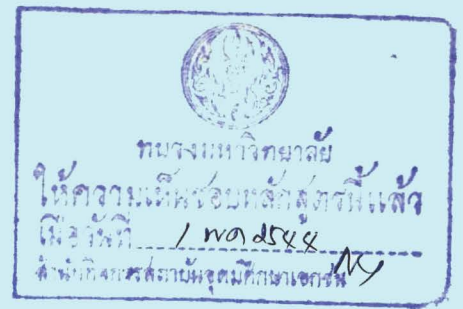 ทบวงมหาวิทยาลัย
ให้ความเห็นชอบหลักสูตรนี้แล้ว
เมื่อวันที่ 1 พค 2544
สำนักกิจการสถาบันอุดมศึกษาเอกชน